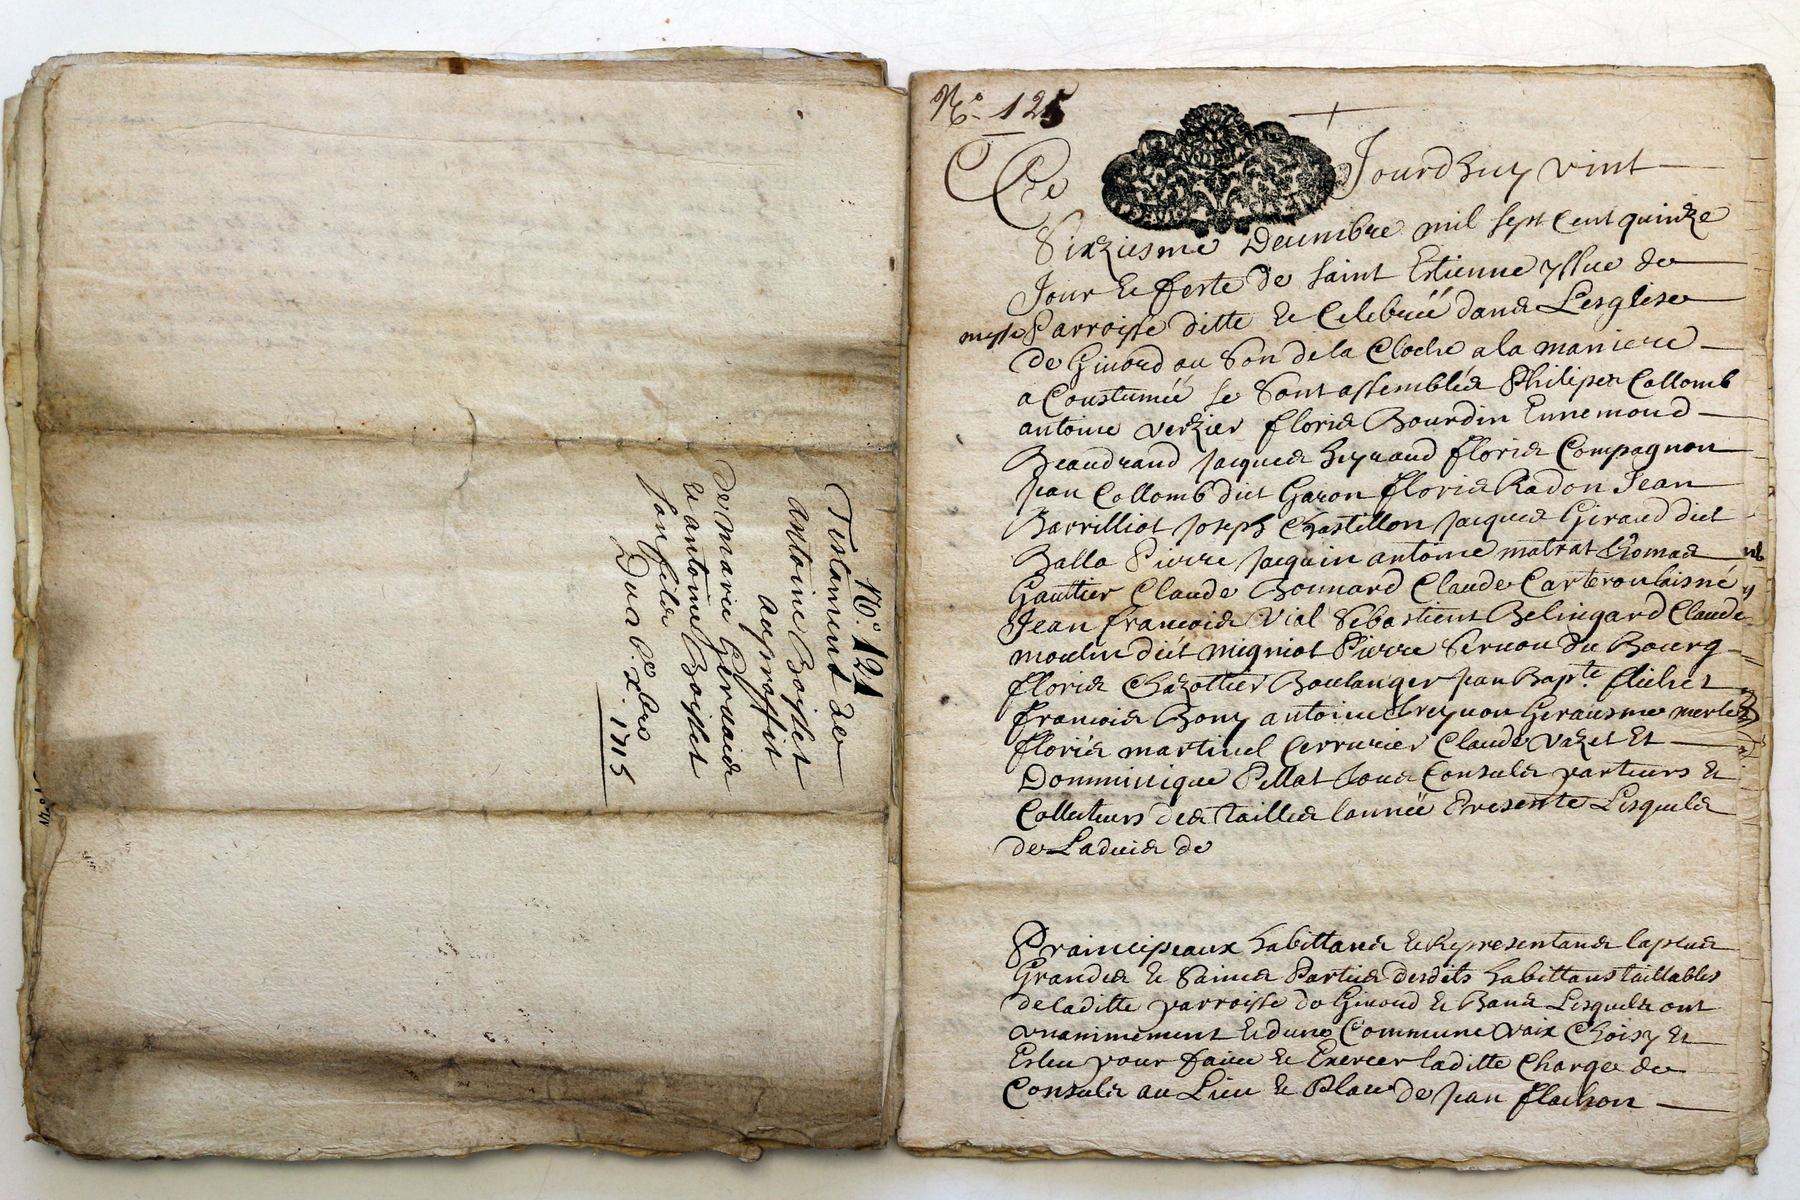 N.o 121
Testament de
Antoine Boisset
au proffit
De marie Gervaix
et antoine Boisset
son filz
Du x.bre 1715
N.o 125
Ce Jourdhuy vint
Sixziesme Decembre mil sept cent quinze
Jour et feste de saint Estienne yssue de
messe Parroisse ditte et Celebreé dans Lesglise
de Givord au Son de la Cloche a la maniere
a Coustumeé se Sont assemblés Philipes Collomb
antoine verzier floris Bourdin Ennemond
Beaudrand Jacques heyraud floris Compagnon
Jean Collomb dict Garon floris Radon Jean
Barrilliot Joseph Chastillon Jacques Giraud dict
Balla Pierre Jacquin antoine matrat thomas
Gauttier Claude Bonnard Claude Carteron laisné
Jean francois Vial Sebastient Belingard Claude
moulin dict migniot Pierre Servon du Bourg
floris Chazottier Boulanger Jean Bapte. flichet
francois Bony antoine Dreynon Geraisme merlet
floris martinel Cerrurier Claude Vazet Et
Domminique Pillat Tous Consuls parteurs et
Collecteurs des Tailles lanneé Presente Lesquels
de Ladvis de
Prainsipeaux habittans et Representans laplus
Grandes et Saines Parties desdits habittans taillables
deladitte parroisse do Givord et Bans Lesquels ont
vnanimement et dune Commune vaix Choisy Et
Esleu pour faire et Exercer laditte Charge de
Consuls au Lieu et Place de Jean flachon